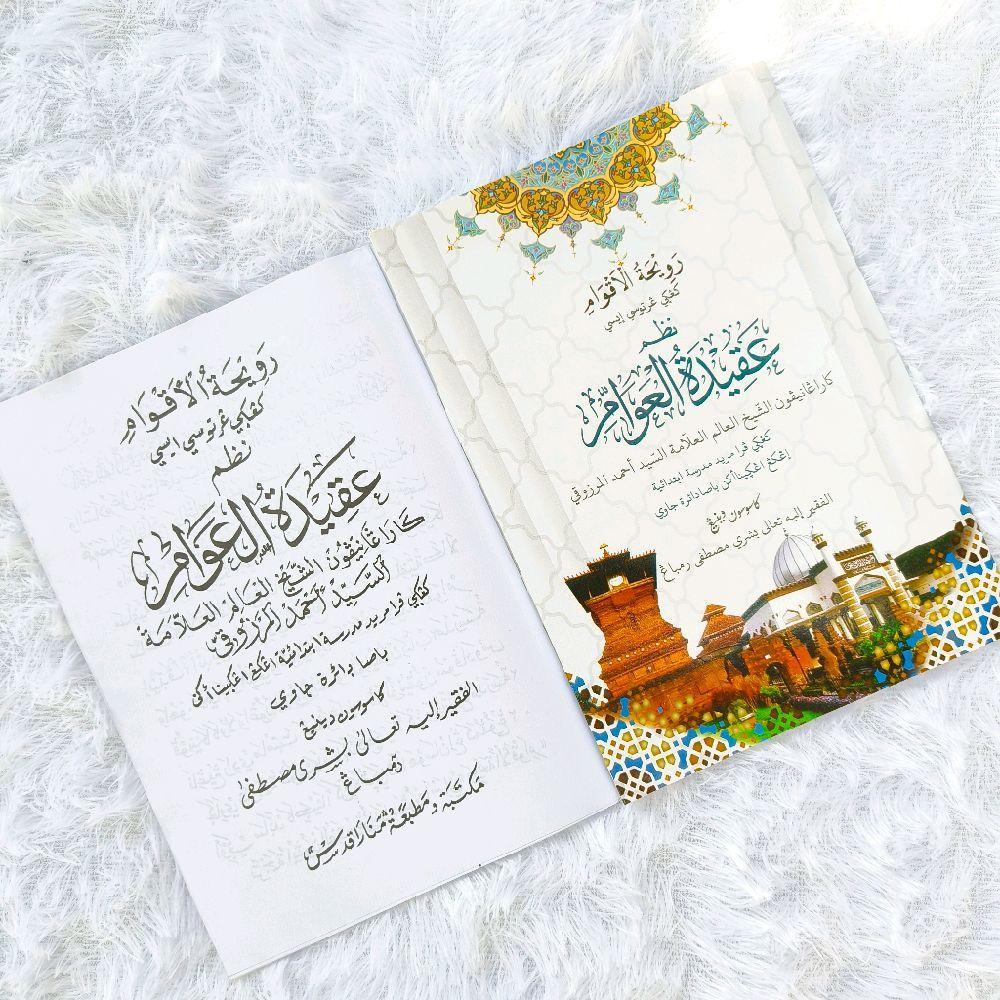 رَوِيْحَةُ الْأَقْوَامِ
كڠكي ڠرتوسي إيسي
نظم
عَقِيْدَةُ الْعَوَامِّ
كاراڠانيڤون الشّيخ العالم العلاّمة السّيد أحمد المرزوقي
كڠكي ڤرا مريد مدرسة ابتدائية
إڠكڠ اڠڮيناأكن باصا دائرة جاوي
كاسوسون ديني
الفقير إليه تعالى بشري مصطفى رمباڠ
رَوِيْحَةُ الْأَقْوَامِ
كڠكي ڠرتوسي ايسي
نظم
عَقِيْدَةُ الْعَوَامِ
كاراڠانيڤون الشَّيْخ العَالِمْ العَلاَّمَة
السَّيِّدْ أَحْمَدْ المَرْزُوقِي
كڠكي ڤرا مريد مدرسة ابتدائية اڠكڠ اڠڮيناأكن
باصا دائرة جاوي
كاسوسون دينيڠ
الفقير إليه تعالى بشرى مصطفى
رمباڠ
مكتبة ومطبعة مَنَارَا قُدُسْ